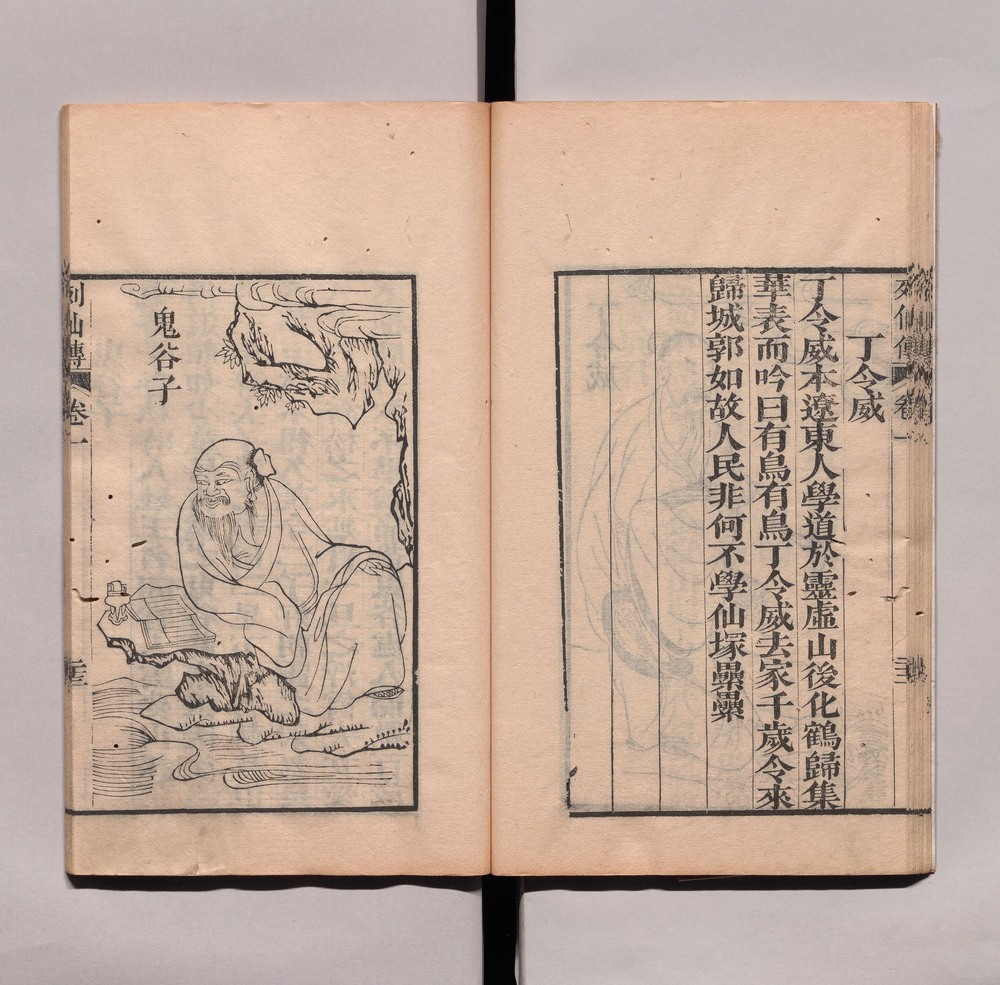 丁令威
丁令威本遼東人學道於靈虛山後化鶴歸集
華表而吟曰有鳥有鳥丁令威去家千歲今來
歸城郭如故人民非何不學仙塚纍纍
列仙傳
卷一
鬼谷子
列仙傳
卷一